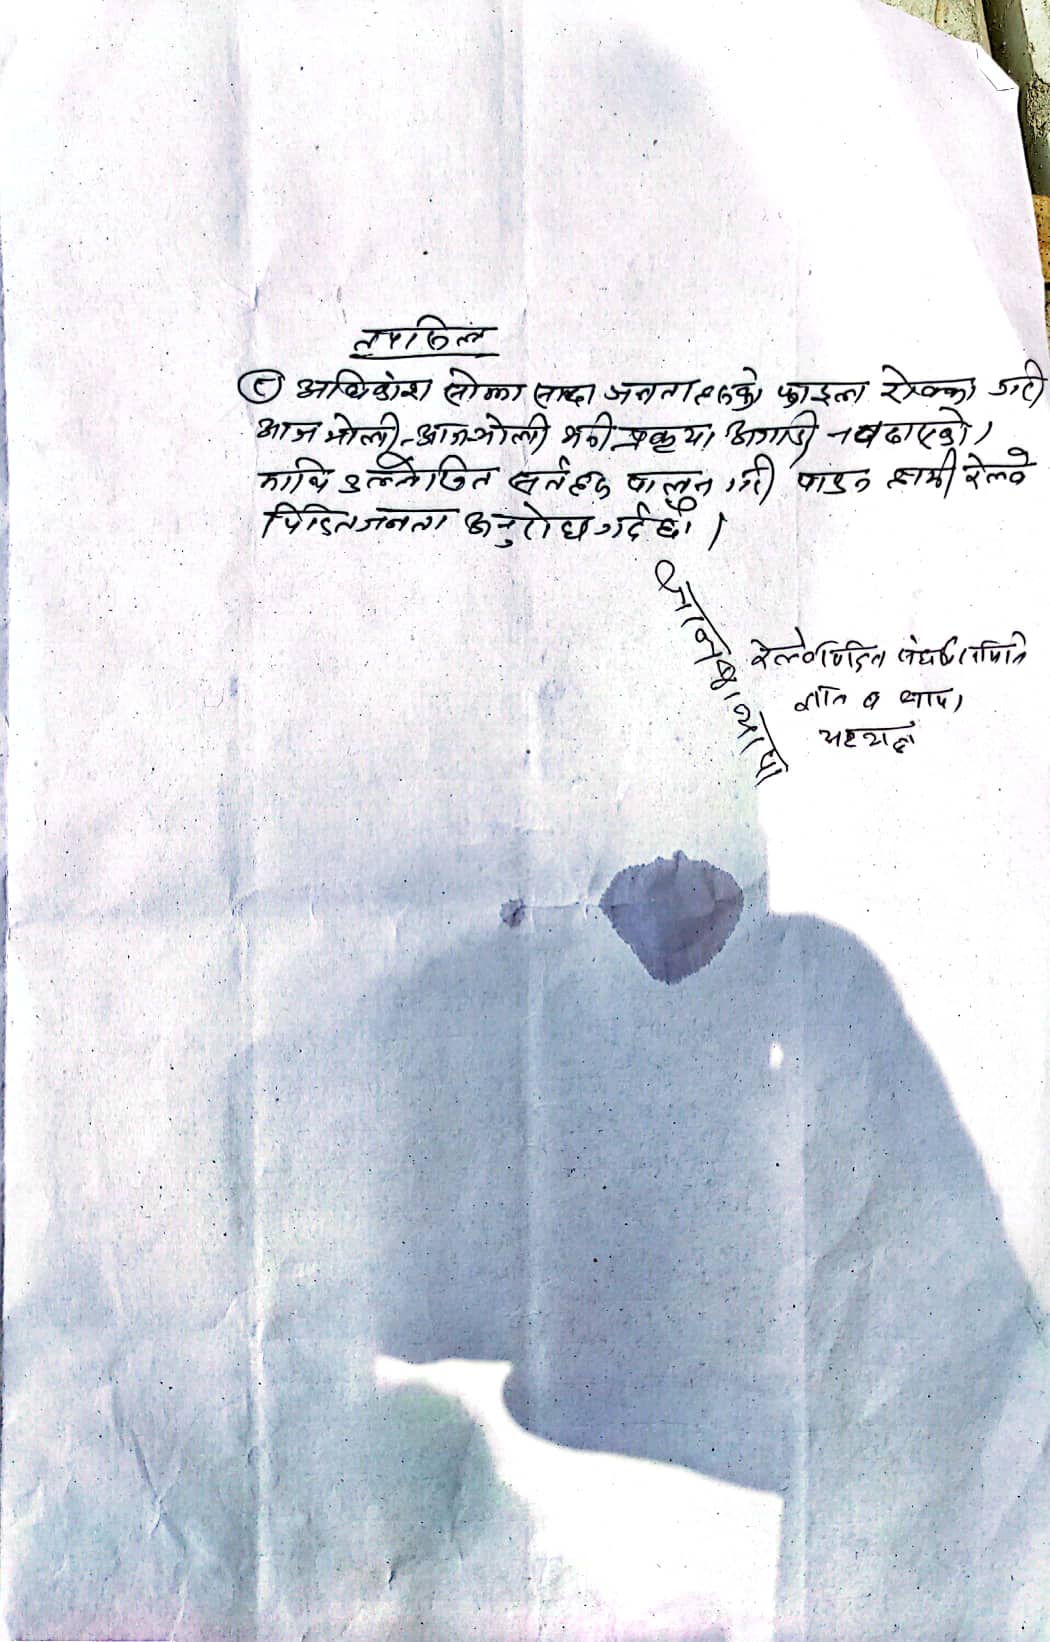 तपसिल
८ अधिकांश सोझा साधा जनताहरुको फाइल रोक्का गरी
आज भोली-आज भोली भनी प्रकृया अगाडी नबढाएको।
माथि उल्लेखित सर्तहरु पालना गरी पाउन हामी रेल्वे
पिडित जनता अनुरोध गर्दछौं।
रेल्वे पिडित संघर्ष समिति